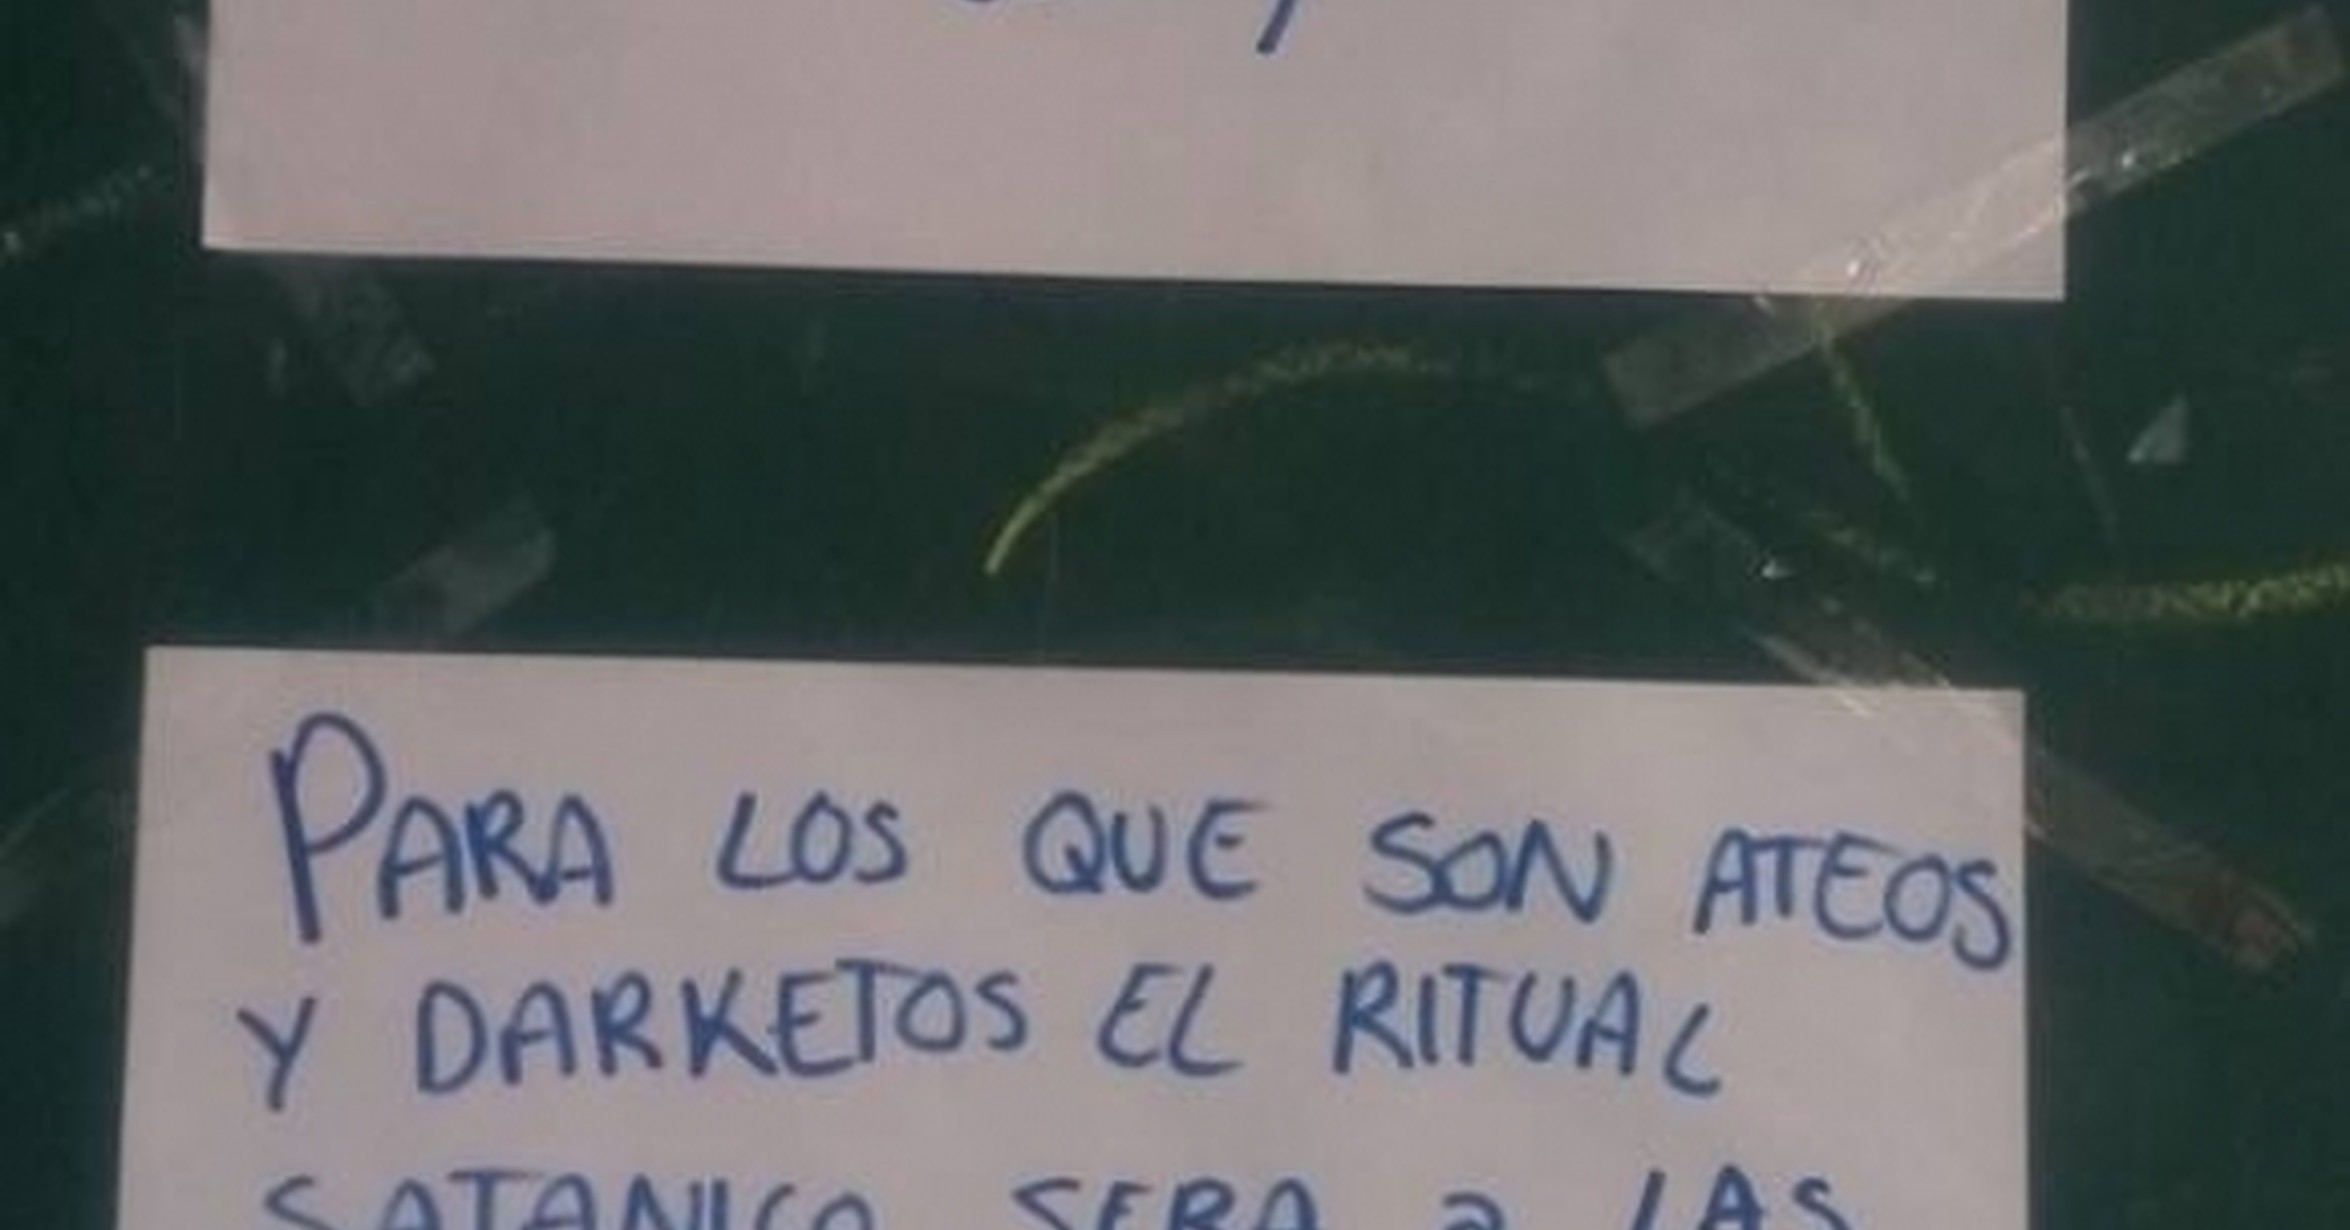 PARA LOS QUE SON ATEOS
Y DARKETOS EL RITUAL
SATANICO SERA a LAS